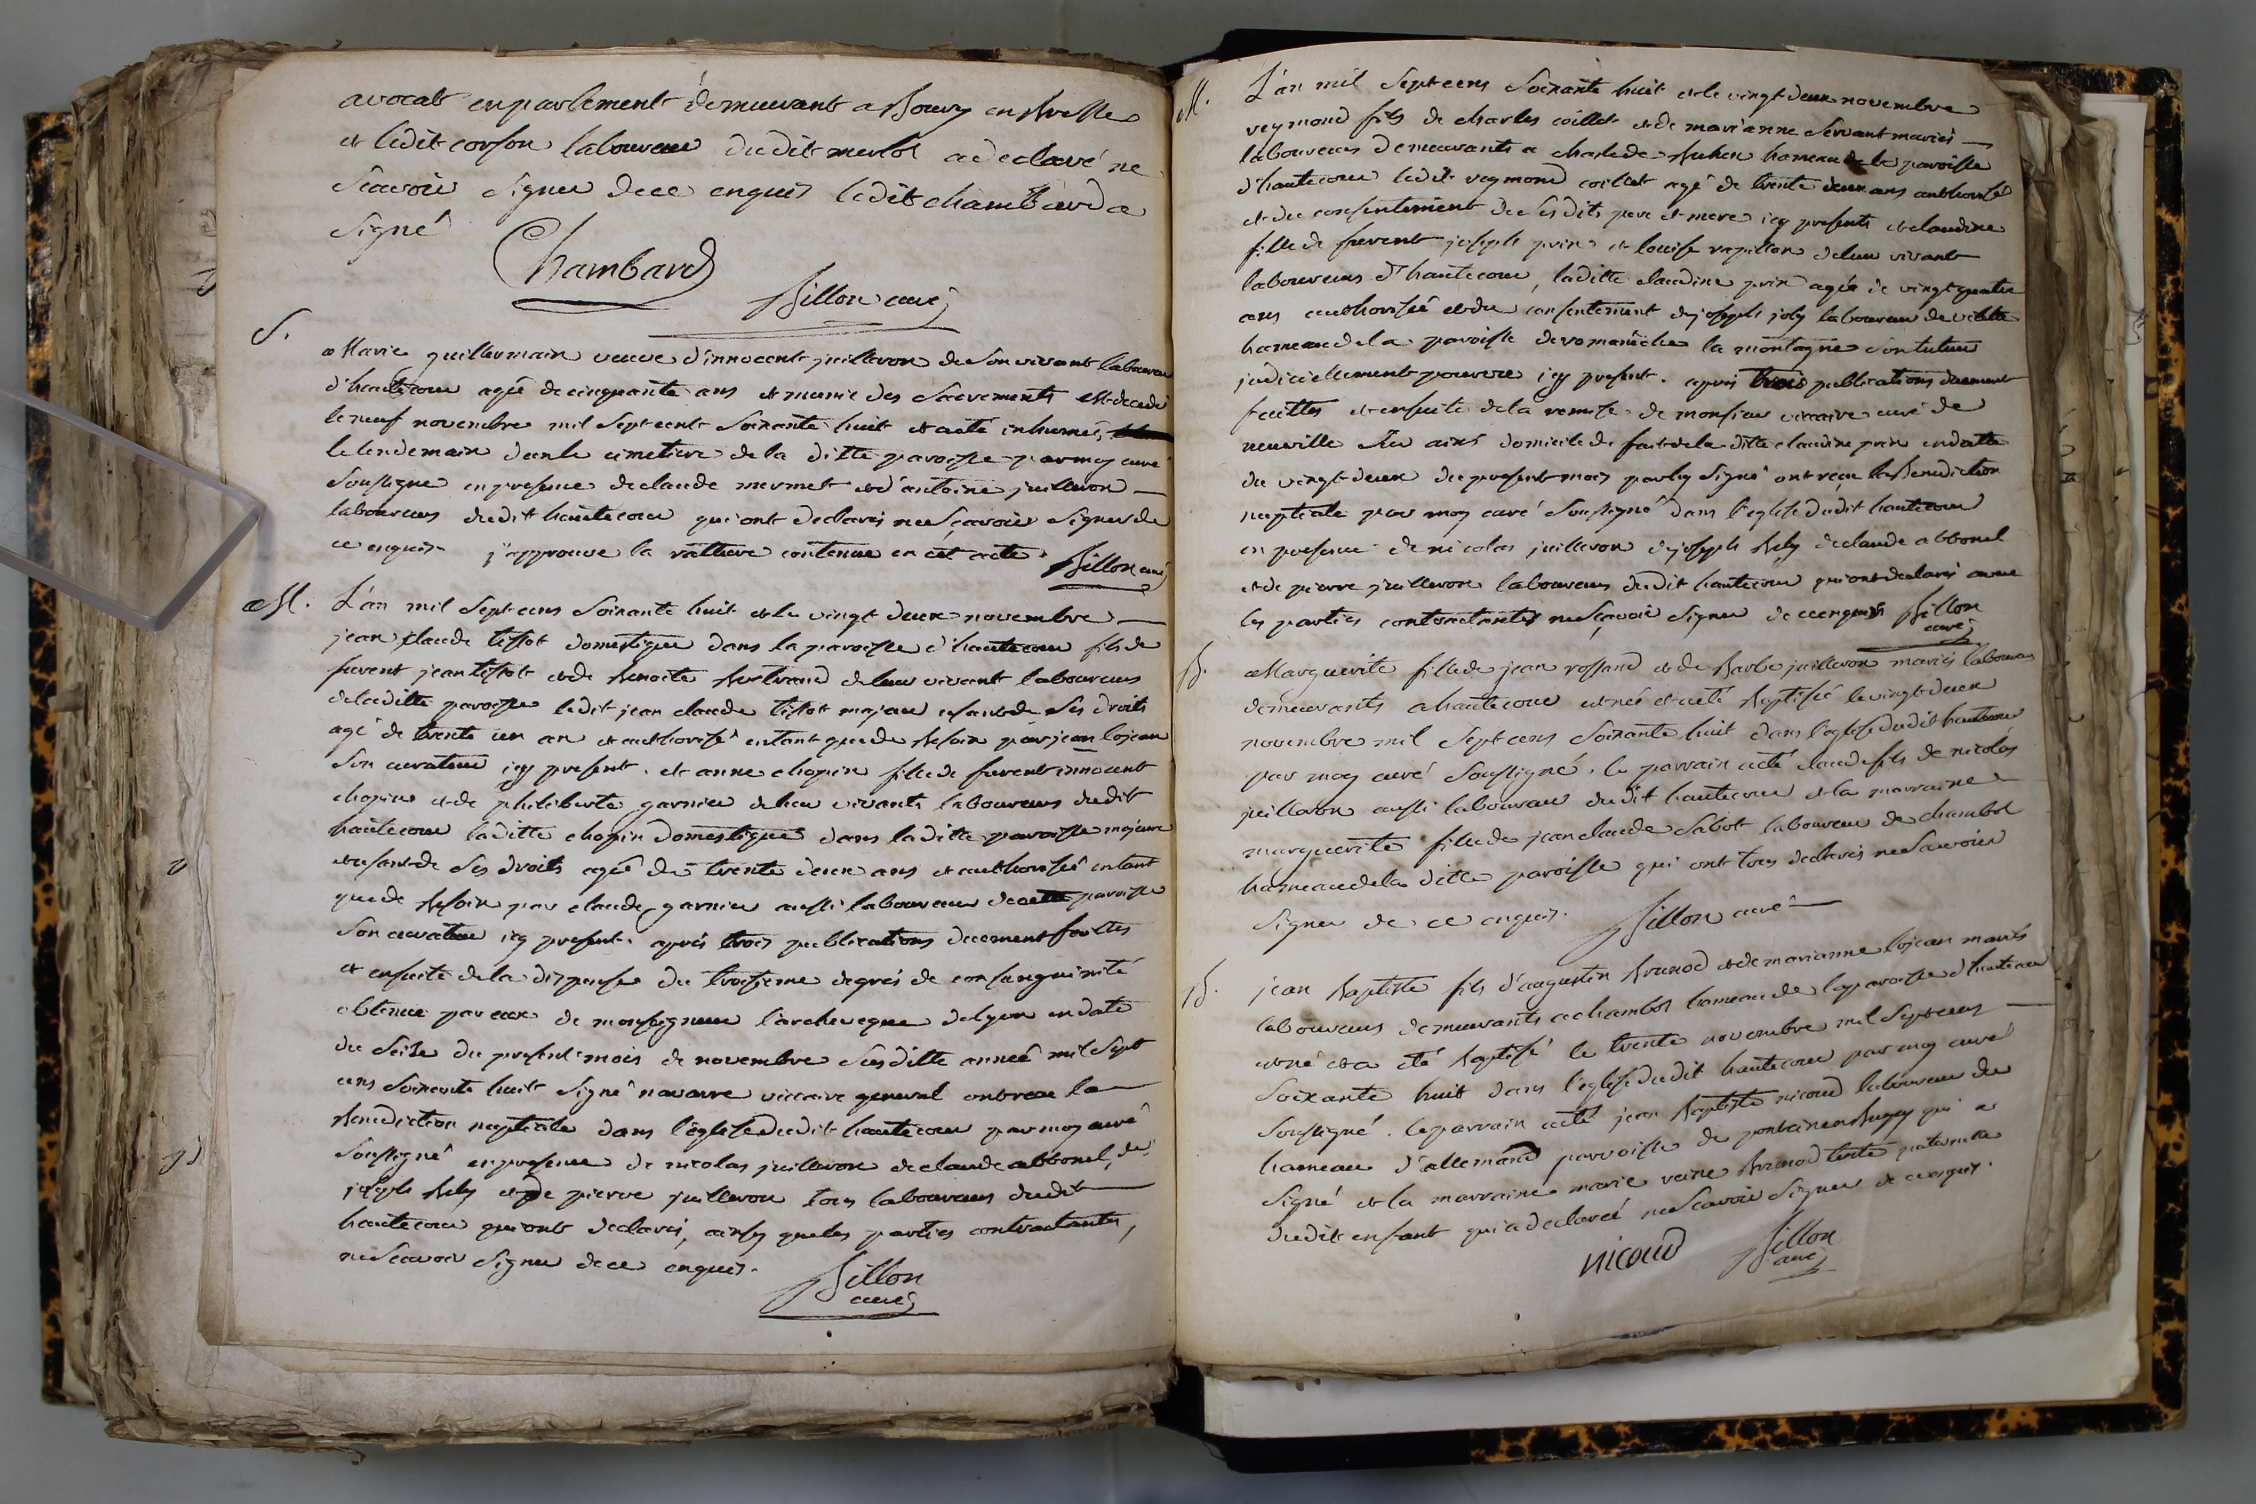 avocat en parlement demeurant a Bourg en Bresse
et ledit corson laboureur dudit merlot a declaré ne
scavoir signer de ce enquis ledit chambard a
signé
Chambard
Billon curé
S.
Marie guillermain veuve d'innocent juilleron de son vivant laboureur
d'hautecour agée de cinquante ans et munie des sacrements est decedé
le neuf novembre mil sept cent soixante huit et a eté inhumée,
le lendemain dans le cimetiere de la ditte paroisse par moy curé
soussigné en presence de claude mermet et d'antoine juilleron
laboureurs dudit hautecour qui ont declarés ne sçavoir signer de
ce enquis. j'approuve la ratture contenue en cet acte. Billon curé
M. L'an mil sept cens soixante huit et le vingt deux novembre
jean claude tissot domestique dans la paroisse d'hautecour fils de
furent jean tissot et de Benoite Bertrand de leur vivant laboureurs
de la ditte paroisse ledit jean claude tissot majeur usant de ses droits
agé de trente un an et authorisé en tant que de besoin par jean lojean
son curateur icy present. et anne chopin fille de furent innocent
chopin et de philiberte garnier de leur vivants laboureurs dudit
hautecour laditte chopin domestique dans laditte paroisse majeure
et usant de ses droits agée de trente deux ans et authorisée en tant
que de besoin par claude garnier aussi laboureur de cette paroisse
son curateur icy present. après trois publications duement faittes
et ensuite de la dispense du troisieme degrés de consanguinité
obtenue par eux de monseigneur l'archeveque de lyon en date
du seize du present mois de novembre susditte année mil sept
cens soixante huit signé navarre viccaire general ont recu la
Benediction nuptiale dans l'église dudit hautecour par moy curé
soussigné en presence de nicolas juilleron de claude abbonel, de
joseph Rely et de pierre juilleron tous laboureurs dudit
hautecour qui ont declarés, ainsy que les parties contractantes,
ne scavoir signer de ce enquis.
Billon
curé
M. L'an mil sept cens soixante huit et le vingt deux novembre
reymond fils de charles coillet et de marianne servant mariés
laboureurs demeurants a hameau de la paroisse
d'hautecour ledit reymond coillet agé de trente deux ans authorisé
et du consentement de ses dits pere et mere icy presents et claudine
fille de furent joseph prin et louise rapillon de leur vivant
laboureurs d'hautecour, laditte claudine prin agée de vingt quatre
ans authorisée et du consentement de joseph joly laboureur de
hameau de la paroisse de romanêche la montagne son tuteur
judiciellement pourvu icy present. après trois publications duement
faittes et ensuite de la remise de monsieur viccaire curé de
neuville sur ains domicile de fait de la ditte claudine prin en datte
du vingt deux du present mois par luy signé ont recu la Benediction
nuptiale par moy curé soussigné dans l'eglise dudit hautecour
en presence de nicolas juilleron de joseph Rely de claude abbonel
et de pierre juilleron laboureurs dudit hautecour qui ont declarés avec
les parties contractantes ne sçavoir signer de ce enquis Billon
curé
B. Marguerite fille de jean rossand et de Barbe juilleron mariés laboureurs
demeurants a hautecour est née et a eté Baptisée le vingt deux
novembre mil sept cens soixante huit dans l'eglise dudit hautecour
par moy curé soussigné. le parrain a eté claude fils de nicolas
juilleron aussi laboureur dudit hautecour et la marraine
marguerite fille de jean claude sabot laboureur de chambod
hameau de la ditte paroisse qui ont tous declarés ne scavoir
signer de ce enquis. Billon curé
B. jean Baptiste fils d'augustin Brunod et de marianne lojean mariés
laboureurs demeurants a chambod hameau de la paroisse d'hautecour
est né et a eté Baptisé le trente novembre mil sept cens
soixante huit dans l'eglise dudit hautecour par moy curé
soussigné. le parrain a eté jean Baptiste nicoud laboureur du
hameau d'allemand parroisse de poncin en Bugey qui a
signé et la marraine marie reine Brunod tente paternelle
dudit enfant qui a declaré ne scavoir signer de ce enquis.
nicoud
Billon
curé